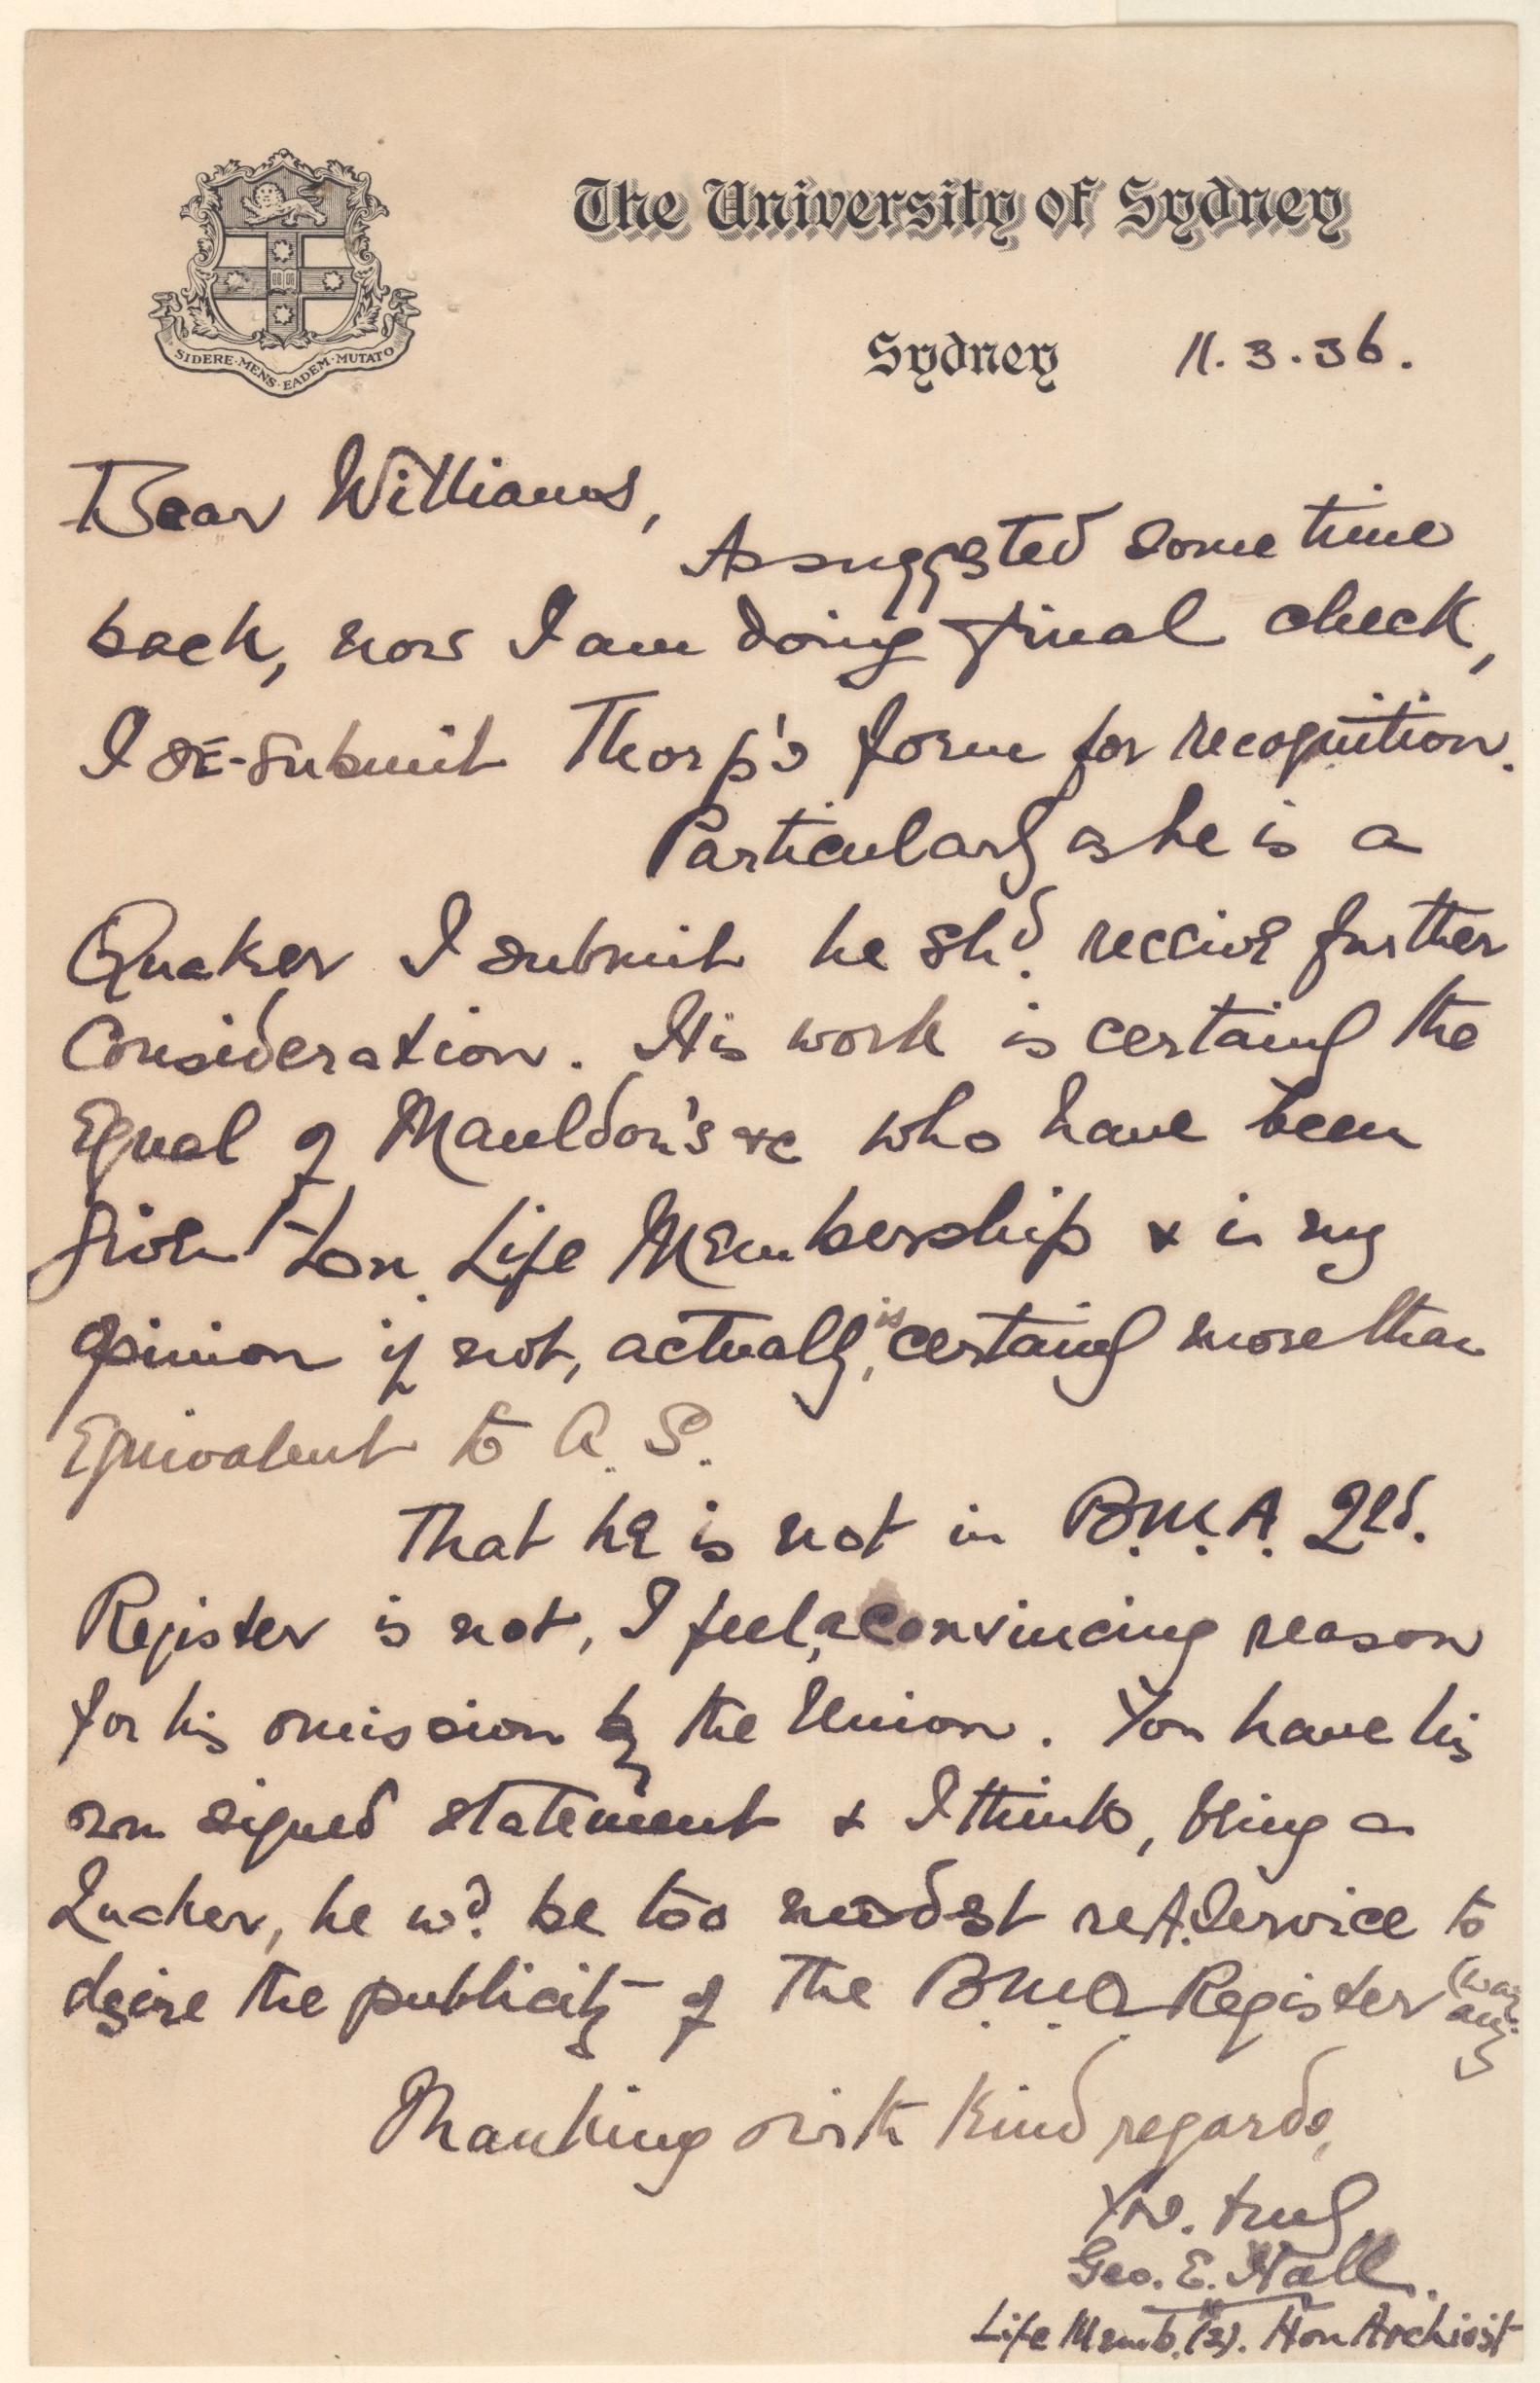 The University of Sydney
SIDERE·MENS·EADEM·MUTATO
Sydney 11.3.36.
Dear Williams,
As suggested some time
back, now I am doing final check,
I re-submit Thorp's form for recognition.
Particularly as he is a
Quaker I submit he shd. receive further
Consideration. His work is certainly the
Equal of Mauldon's &c who have been
given Hon. Life Membership & in my
opinion if not, actually, is certainly more than
Equivalent to A.S.
That he is not in B.M.A.
Register is not, I feel, a convincing reason
for his omission by the Union. You have his
own signed statement & I think, being a
Quaker, he wd. be too modest re A. Service to
desire the publicity of the B.M.A. Register
Thanking with kind regards,
Yrs. truly
Geo. E. Hall.
Life Memb. (2). Hon Archivist